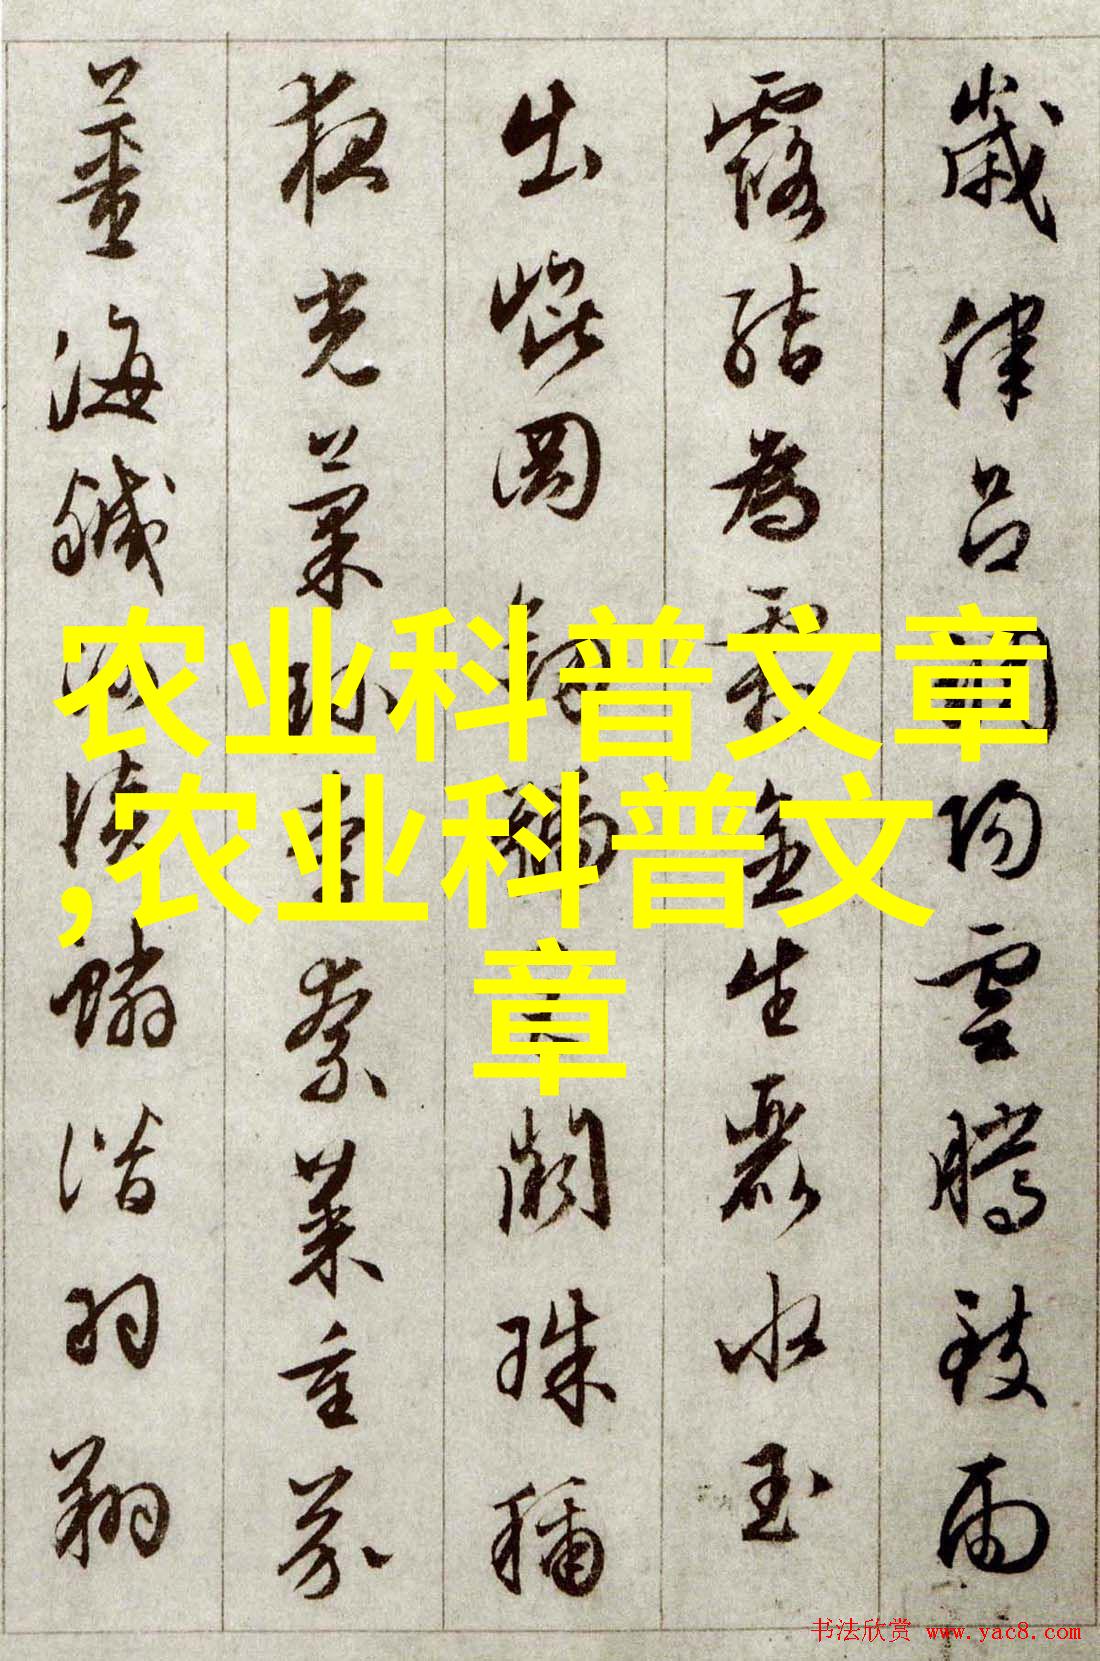 歲律呂調陽雲騰致雨
露結為霜金生麗水玉
出崐岡劍號闕珠稱
夜光菓珍李柰菜重芥
薑海鹹河淡鱗潛羽翔
农业科普文章
,农业科普文
章
书法欣赏 www.yac8.com